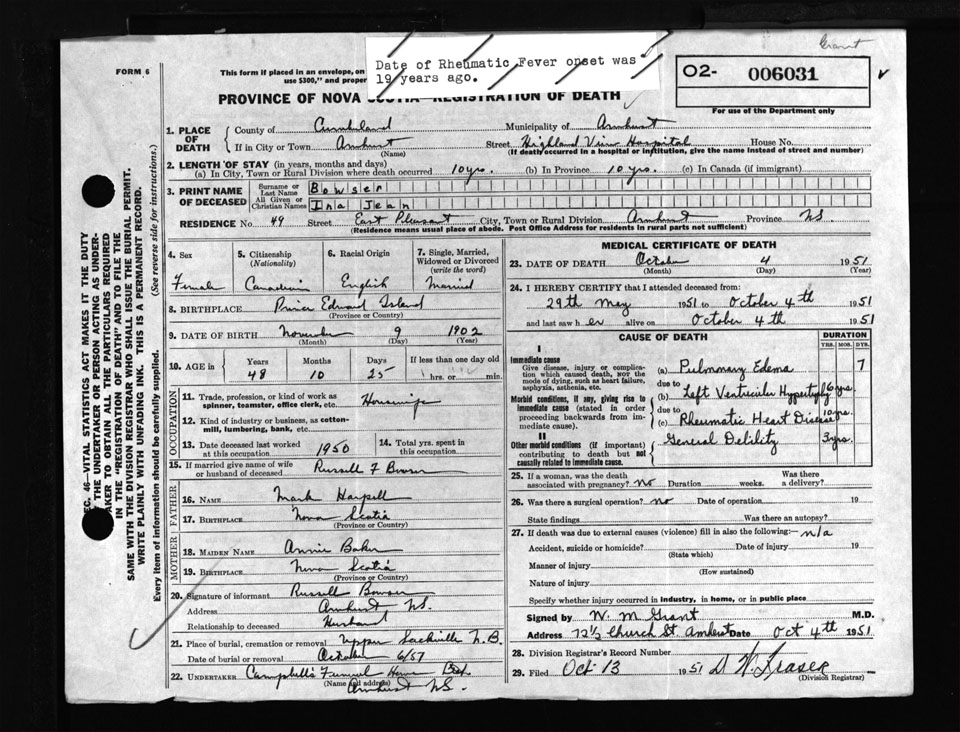 Grant
Date of Rheumatic Fever onset was
19 years ago.
FORM 6
This form if placed in an envelope, on
use $300," and proper
PROVINCE OF NOVA SCOTIA REGISTRATION OF DEATH
02- 006031
For use of the Department only
1. PLACE OF DEATH
County of Cumberland Municipality of Amherst
If in City or Town Amherst Street Highland View Hospital House No.
(Name) (If death occurred in a hospital or institution, give the name instead of street and number)
2. LENGTH OF STAY (in years, months and days)
(a) In City, Town or Rural Division where death occurred 10 yrs. (b) In Province 10 yrs. (c) In Canada (if immigrant)
3. PRINT NAME OF DECEASED
Surname or Last Name Bowser
All Given or Christian Names Ina Jean
RESIDENCE No. 49 Street East Pleasant City, Town or Rural Division Amherst Province NS
(Residence means usual place of abode. Post Office Address for residents in rural parts not sufficient)
4. Sex
Female
5. Citizenship (Nationality)
Canadian
6. Racial Origin
English
7. Single, Married, Widowed or Divorced (write the word)
Married
8. BIRTHPLACE Prince Edward Island
(Province or Country)
9. DATE OF BIRTH November 9 1902
(Month) (Day) (Year)
10. AGE in
Years Months Days If less than one day old
48 10 25 hrs. or min.
OCCUPATION
11. Trade, profession, or kind of work as spinner, teamster, office clerk, etc. Housewife
12. Kind of industry or business, as cotton-mill, lumbering, bank, etc.
13. Date deceased last worked at this occupation 1950
14. Total yrs. spent in this occupation
15. If married give name of wife or husband of deceased Russell F Bowser
FATHER
16. NAME Mark Harpell
17. BIRTHPLACE Nova Scotia
(Province or Country)
MOTHER
18. MAIDEN NAME Annie Baker
19. BIRTHPLACE Nova Scotia
(Province or Country)
20. Signature of informant Russell Bowser
Address Amherst NS.
Relationship to deceased Husband
21. Place of burial, cremation or removal Upper Sackville N.B.
Date of burial or removal October 6/51
22. UNDERTAKER Campbell's Funeral Home Ltd.
(Name and address) Amherst NS.
MEDICAL CERTIFICATE OF DEATH
23. DATE OF DEATH October 4 1951
(Month) (Day) (Year)
24. I HEREBY CERTIFY that I attended deceased from:
29th May 1951 to October 4th 1951
and last saw h er alive on October 4th 1951
CAUSE OF DEATH
DURATION
YRS. MOS. DYS.
I
Immediate cause
Give disease, injury or complication which caused death, not the mode of dying, such as heart failure, asphyxia, asthenia, etc.
(a) Pulmonary Edema 7
due to
Morbid conditions, if any, giving rise to immediate cause (stated in order proceeding backwards from immediate cause).
(b) Left Ventricular Hypertrophy 6 yrs.
due to
(c) Rheumatic Heart Disease 10 yrs.
II
Other morbid conditions (if important) contributing to death but not causally related to immediate cause.
General Debility 3 yrs.
25. If a woman, was the death associated with pregnancy? no Duration weeks. Was there a delivery?
26. Was there a surgical operation? no Date of operation 19
State findings Was there an autopsy?
27. If death was due to external causes (violence) fill in also the following:— n/a
Accident, suicide or homicide? Date of injury 19
(State which)
Manner of injury
(How sustained)
Nature of injury
Specify whether injury occurred in industry, in home, or in public place
Signed by W. M Grant M.D.
Address 72½ Church St Amherst Date Oct 4th 1951
28. Division Registrar's Record Number
29. Filed Oct 13 1951 D W Fraser
(Division Registrar)
EC. 46—VITAL STATISTICS ACT MAKES IT THE DUTY
THE UNDERTAKER OR PERSON ACTING AS UNDER-
AKER TO OBTAIN ALL THE PARTICULARS REQUIRED
IN THE "REGISTRATION OF DEATH" AND TO FILE THE
SAME WITH THE DIVISION REGISTRAR WHO SHALL ISSUE THE BURIAL PERMIT.
WRITE PLAINLY WITH UNFADING INK. THIS IS A PERMANENT RECORD.
Every item of information should be carefully supplied. (See reverse side for instructions.)